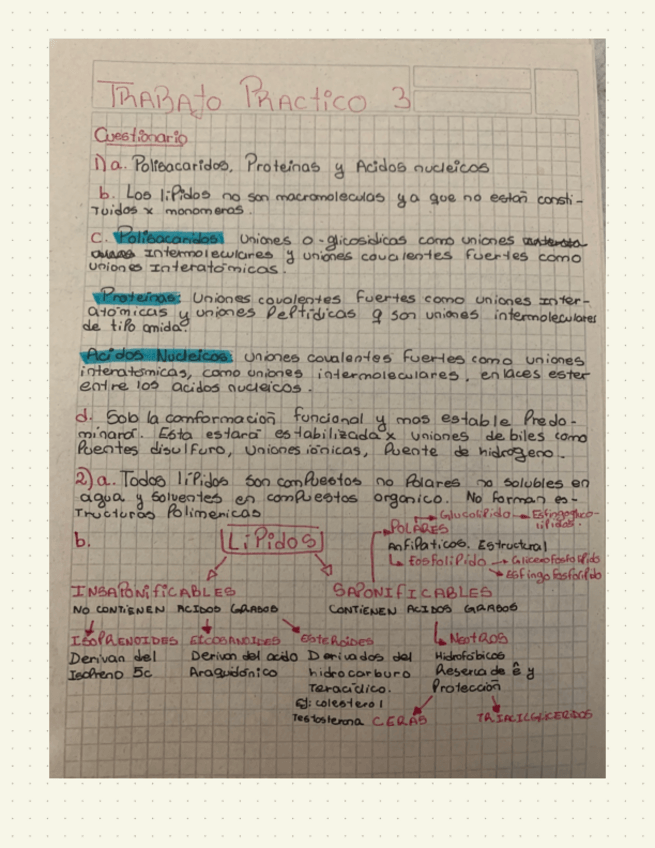 TRABAJO PRACTICO 3
Cuestionario
1) a. Polisacaridos, Proteinas y Acidos nucleicos
b. Los liPidos no son macromoleculas ya que no están consti-
Tuidos x monomeros.
c. Polisacaridos: Uniones o-glicosidicas como uniones
Intermoleculares y uniones covalentes fuertes como
uniones Interatómicas.
Proteinas: Uniones covalentes fuertes como uniones Inter-
atomicas y uniones PePtidicas q son uniones intermoleculares
de tipo amida.
Acidos Nucleicos: Uniones covalentes fuertes como uniones
interatómicas, como uniones intermoleculares, enlaces ester
entre los acidos nucleicos.
d. Sob la comformación funcional y mas estable Predo-
minará. Esta estará estabilizada x uniones debiles como
Puentes disulfuro, Uniones iónicas, Puente de hidrogeno.
2) a. Todos lípidos son comPuestos no Polares no solubles en
agua y solventes en comPuestos organico. No forman es-
Tructuras Polimericas
b. LiPiDOS
POLARES → Glucolípido → Esfingogluco-
lipidos.
Anfipaticos. Estructural
Fosfolípido → Glicerofosfolípido
→ Esfingofosfolípido
INSAPONIFICABLES
NO CONTIENEN ACIDOS GRASOS
SAPONIFICABLES
CONTIENEN ACIDOS GRASOS
ISOPRENOIDES
Derivan del
Isopreno 5c
EICOSANOIDES
Derivan del acido
Araquidónico
Esteroides
Derivados del
hidrocarburo
Teracíclico.
Ej: colesterol
Testosterona
Neutros
Hidrofóbicos
Reserva de ê y
Protección
CERAS
TRIACILGLICERIDOS